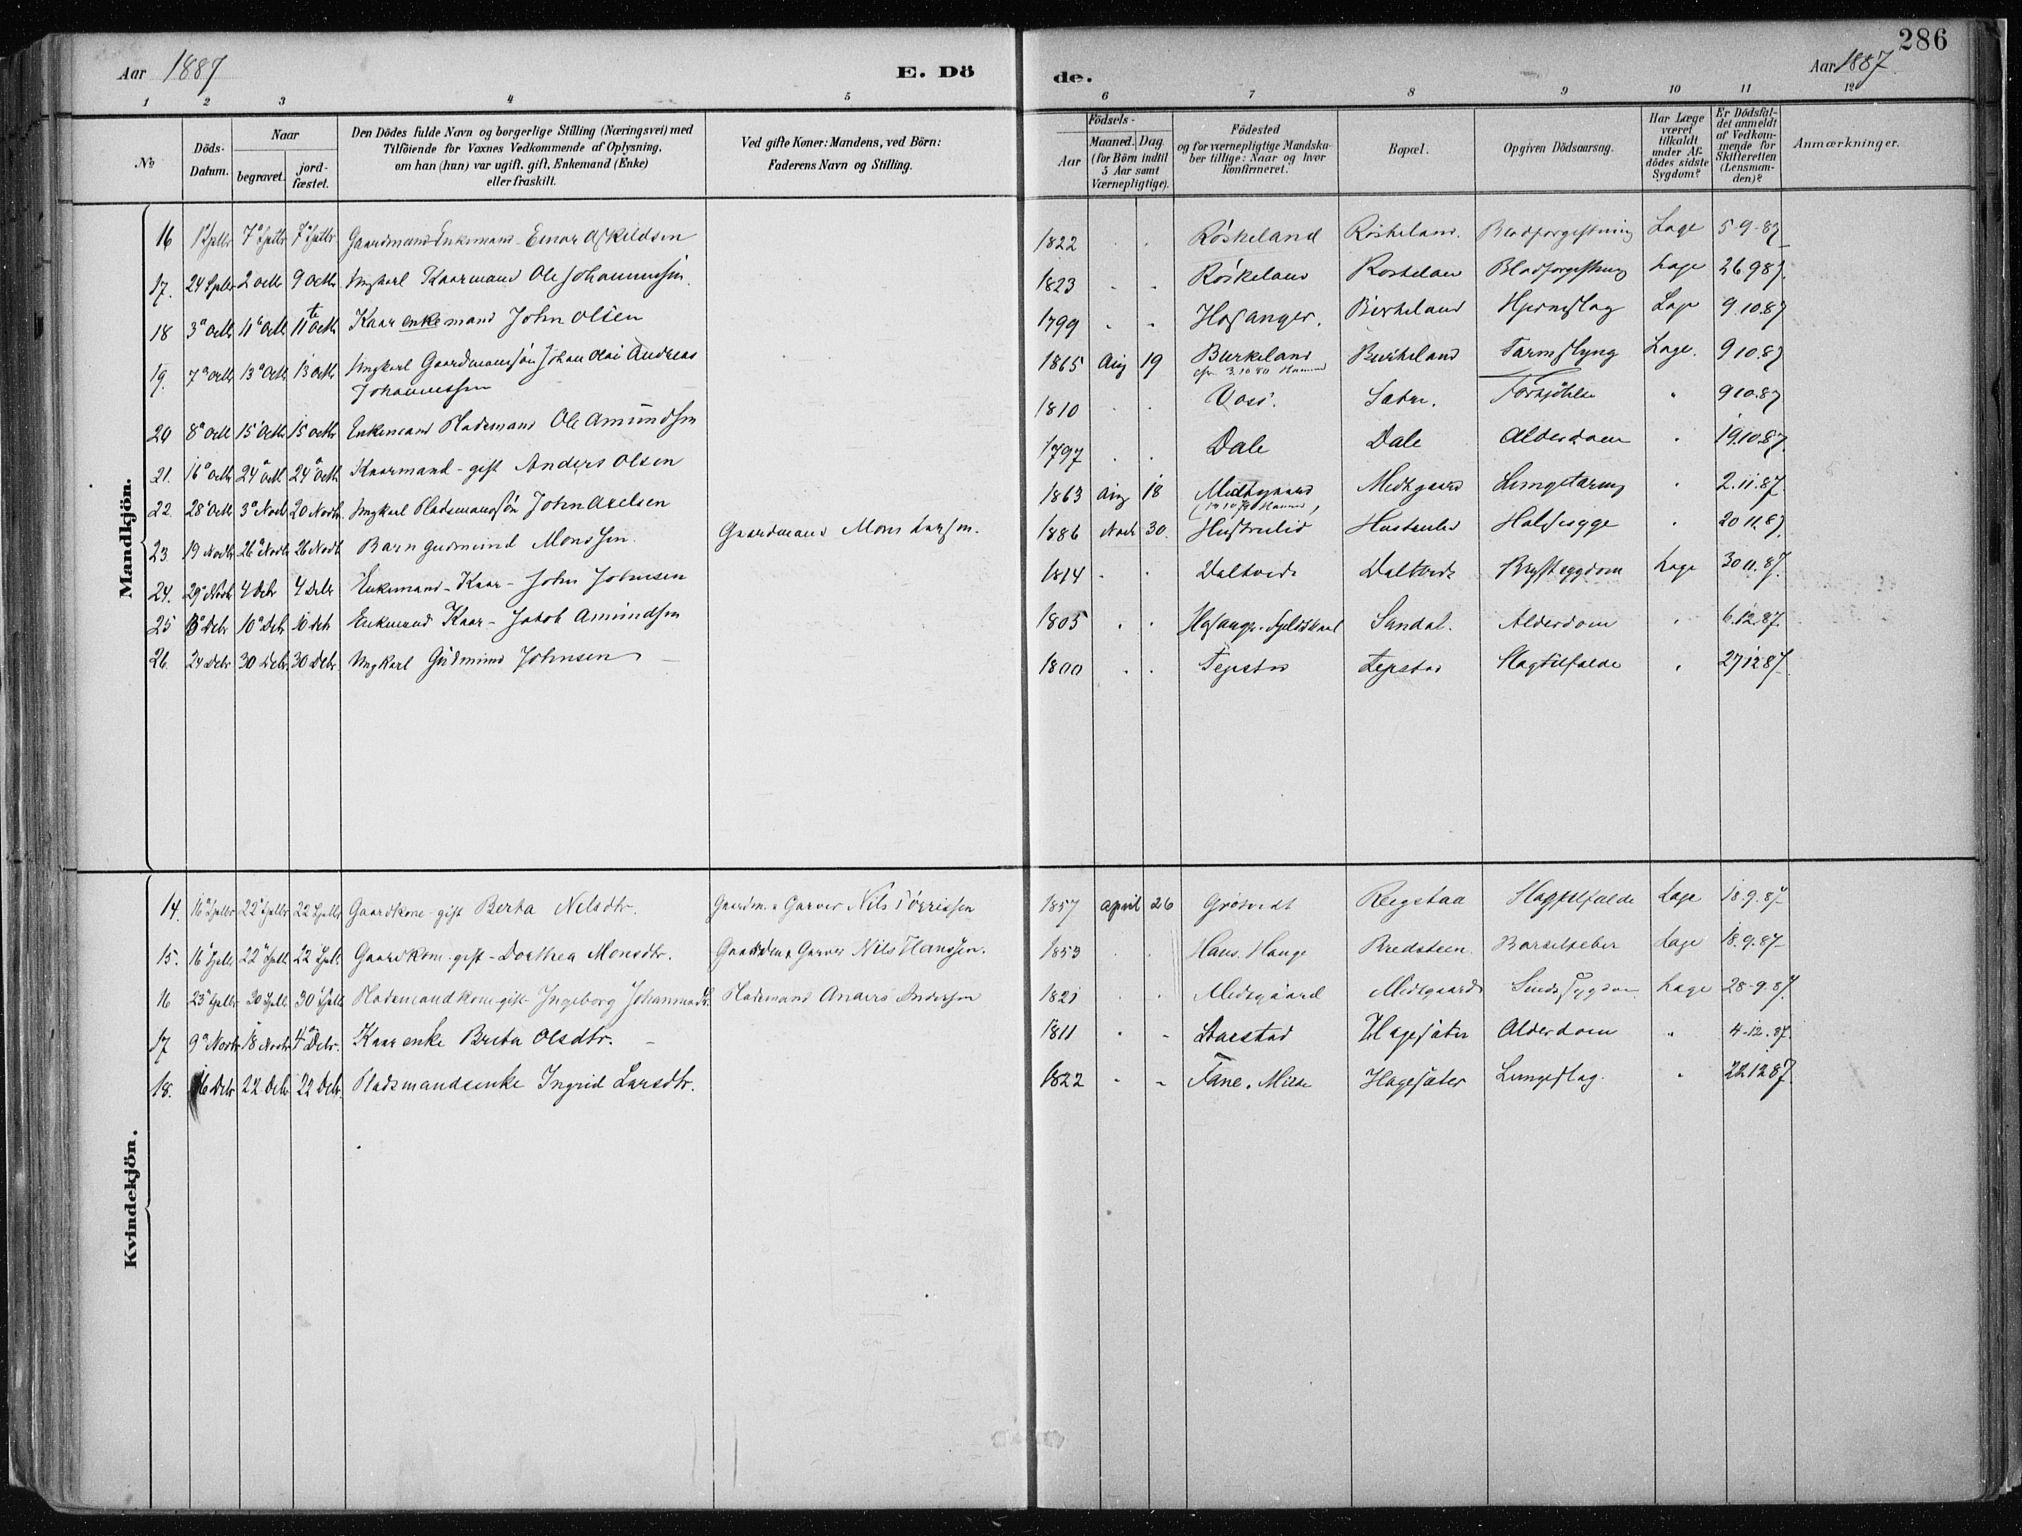 286
Aar 1887 E. Dö de. Aar 1887.
1 2 3 4 5 6 7 8 9 10 11 12
No
Döds-Datum.
Naar
begravet. jord-fæstet.
Den Dödes fulde Navn og borgerlige Stilling (Næringsvei) med
Tilföiende for Voxnes Vedkommende af Oplysning,
om han (hun) var ugift, gift, Enkemand (Enke)
eller fraskilt.
Ved gifte Koner: Mandens, ved Börn:
Faderens Navn og Stilling.
Födsels-
Aar Maaned. Dag.
(for Börn indtil
5 Aar samt
Værnepligtige).
Födested
og for værnepligtige Mandska-
ber tillige: Naar og hvor
konfirmeret.
Bopæl.
Opgiven Dödsaarsag.
Har Læge
været
tilkaldt
under Af-
dödes sidste
Sygdom?
Er Dödsfal-
det anmeldt
af Vedkom-
mende for
Skifteretten
(Lensman-
den)?
Anmærkninger.
Mandkjön.
16 1 Sptbr 7 Sptbr 7 Sptbr Gaardmand Enkemand - Einar Askildsen 1822 Röskeland Röskeland. Blodforgiftning Læge 5-9-87
17. 24 Sptbr 2 Octb 9 Octb Ungkarl Kaarmand Ole Johannessen. 1823 Röskeland Röskeland Blodforgiftning Læge 26 9 87.
18 3 Octb 11 Octb 11te Octb Kaarenkemand John Olsen 1799 Hosanger. Birkeland Hjerneslag Læge 9.10.87
19. 7 Octb 13 Octb 13 Octb Ungkarl Gaardmandssön Johan Olai Andreas 1865 Aug 19 Birkeland Birkeland Tarmslyng Læge. 9 10.87
Johannessen 3.10 80
20 8 Octb 15 Octb 15 Octb Enkemand Pladsmand Ole Amundsen 1810 Voss. Sætre. Forkjölelse " 9 10.87
21. 16 Octb 24 Octb 24 Octb Kaarmand - gift Anders Olsen 1797 Dale Dale Alderdom " 19.10.87.
22. 28 Octb 3 Novb 20 Novbr Ungkarl Pladsmandssön John Axelsen 1863 Aug 18 Midtgaard Midtgaard Lungetæring " 2.11.87.
23. 19 Novbr 26 Novbr 26 Novb Barn Gudmund Monssen. Gaardmand Mons Larssen. 1886 Novb 30. Hustrulid Hustrulid Halssyge " 20 11.87.
24. 29 Novb 4 Debr 4 Debr Enkemand - Kaar - John Johnsen 1814 Daltvedt Daltvedt Brystsygdom Læge 30 11.87.
25 3 Debr 10 Debr 10 Debr Enkemand Kaar - Jakob Amundsen 1805 Sandal. Alderdom " 6.12.87.
26. 24 Debr 30 Debr 30 Debr Ungkarl Gudmund Johnsen 1800 Tepstad Tepstad Slagtilfælde " 27 12 87.
Kvindekjön.
14. 16 Sptbr 22 Sptbr 22 Sptbr Gaardkone - gift Berta Nilsdtr. Gaardm. & Garver Nils Törrissen 1857 April 26 Grötvedt Reigstad Slagtilfælde Læge 18.9.87
15. 16 Sptbr 22 Sptb 22 Sptb. Gaardkone - gift - Dorthea Monsdtr. Gaardm & Garver Nils Hanssen. 1853 Haus. Hauge Bredsteen Barselfeber Læge 18.9.87
16 23 Sptbr 30 Sptb 30 Sptb Pladsmandkone - gift - Ingeborg Johannesdtr. Pladsmand Anders Andersen 1821 Midtgaard Midtgaard Sindssygdom Læge 28-9.87.
17 9 Novbr 18 Novbr 4 Debr. Kaarenke Brita Olsdtr. 1811 Hagesæter Alderdom " 4-12.87.
18. 16 Debr 22 Debr 22 Debr. Pladsmandsenke Ingrid Larsdtr. 1822 Fane. Milde Hagesæter Lungeslag. " 22 12 87.